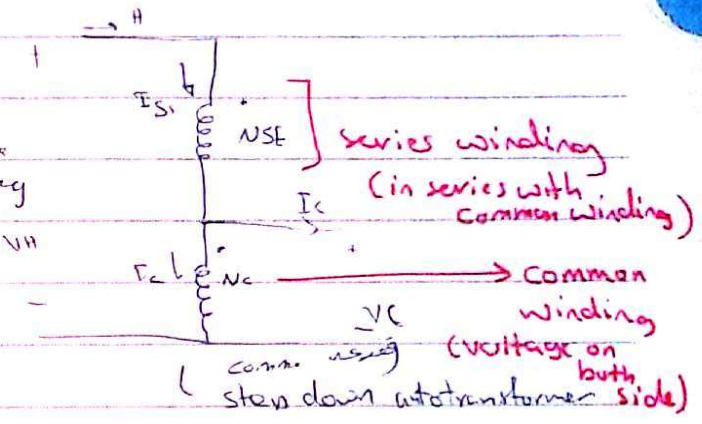 H
+
IS,
NSE
series winding
(in series with
common winding)
Ic
VH
+
Ic
Nc
common
winding
-
VC
(voltage on
both
side)
( step down autotransformer